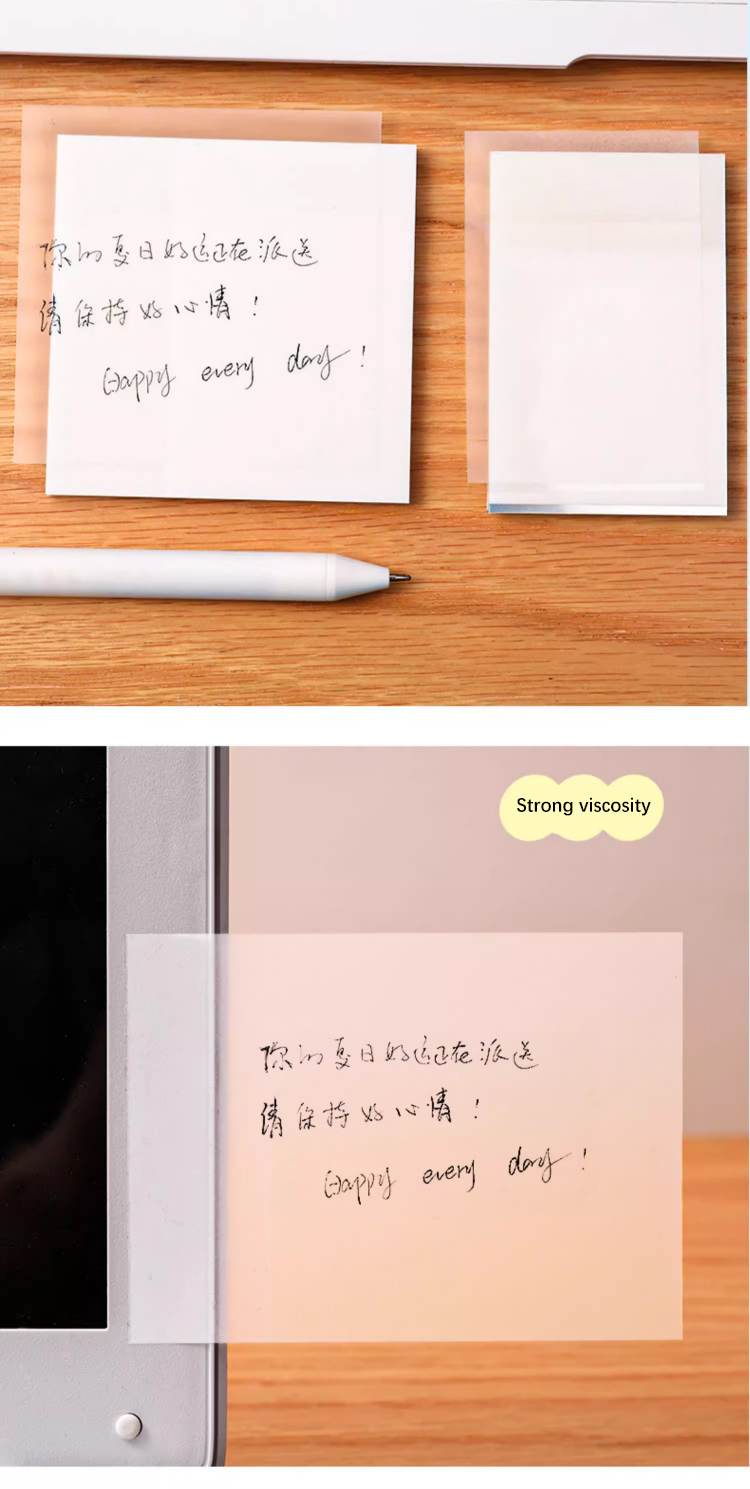 你的夏日好运正在派送
请保持好心情！
Happy every day！
Strong viscosity
你的夏日好运正在派送
请保持好心情！
Happy every day！